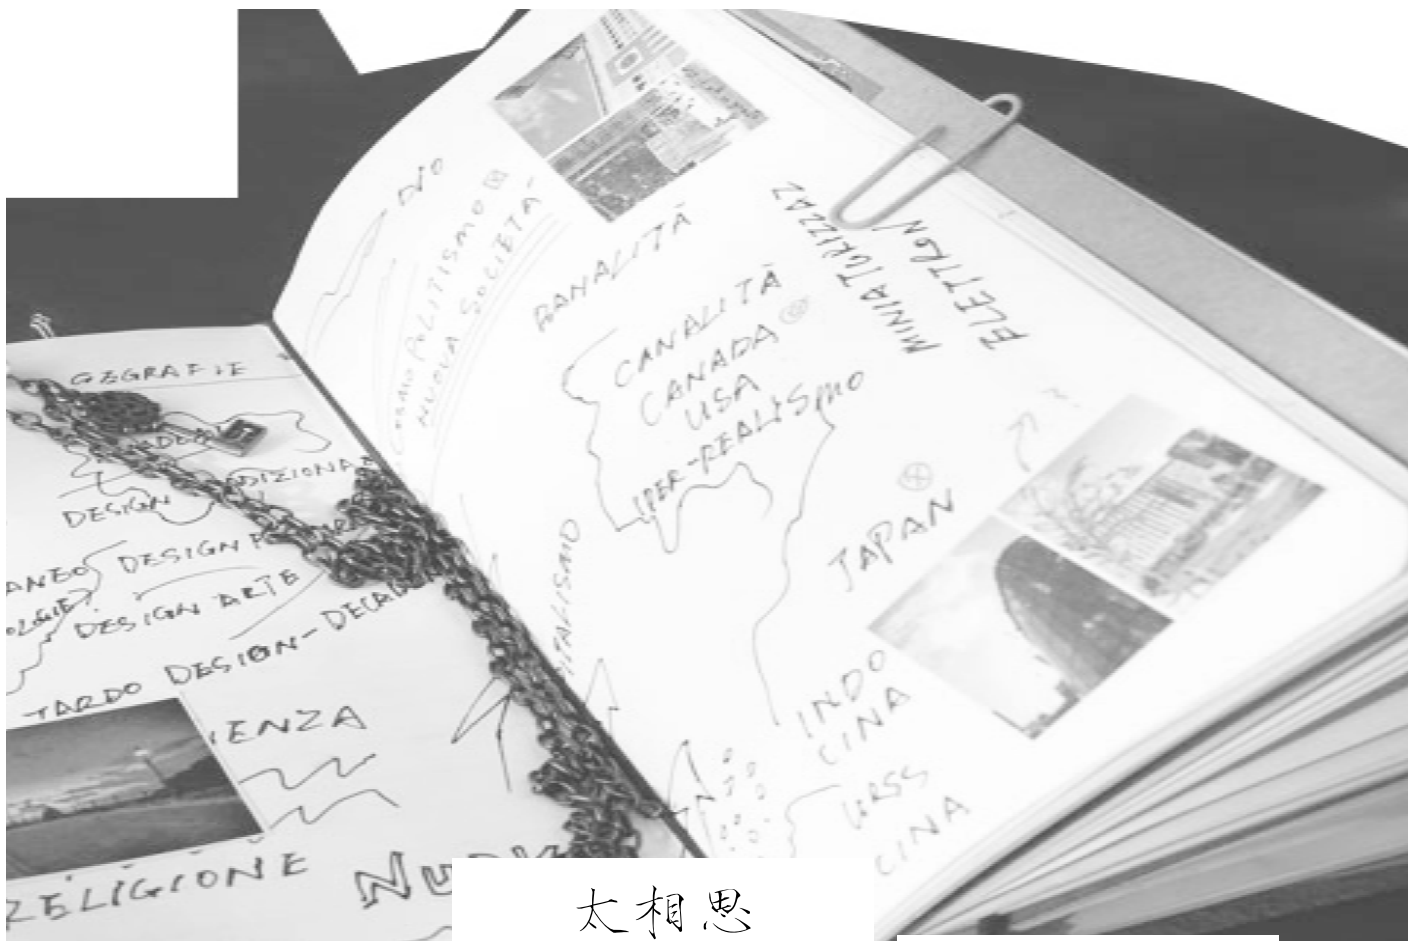 GEGRAFIE
DESIGN
DESIGN
DESIGN ARTE
TARDO DESIGN-DECA
IENZA
RELIGIONE
DIO
COSMOPOLITISMO
NUOVA SOCIETÀ
BANALITÀ
CANALITÀ
CANADA
USA
IPER-REALISMO
MINIATURIZZAZ
ELETTRON
JAPAN
INDO
CINA
URSS
CINA
太相思